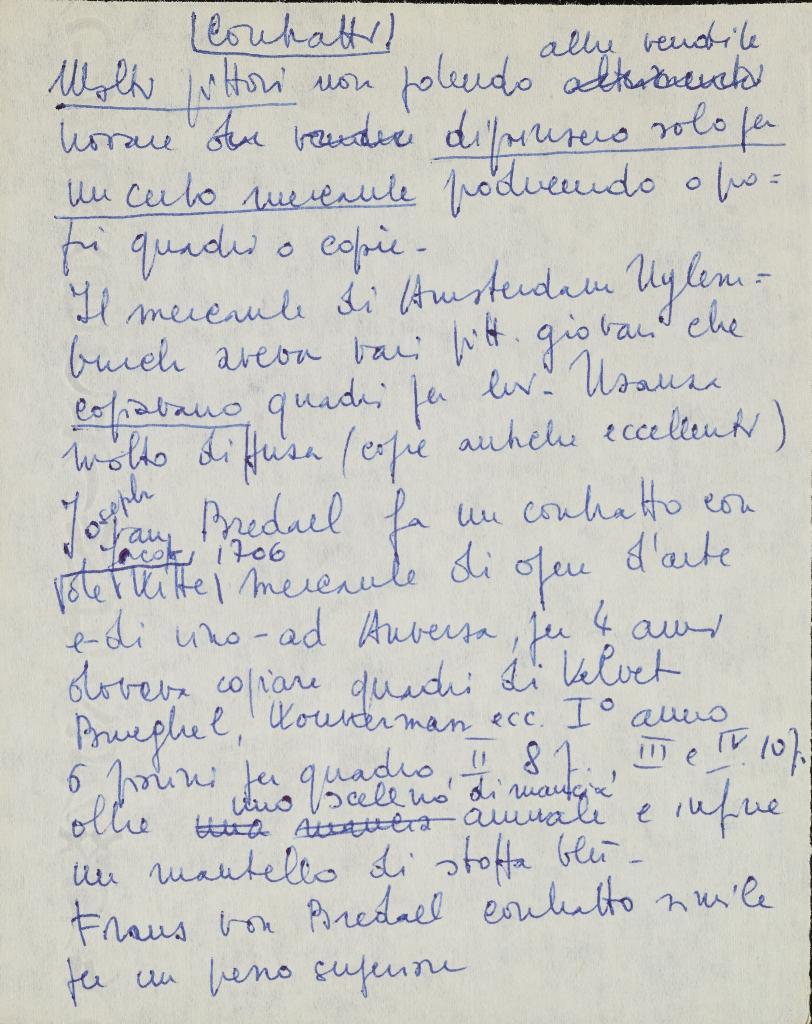 (Contratti)
altre vendite
Molti pittori non potendo altrimenti
trovare da vendere dipinsero solo per
un certo mercante producendo o pro=
pri quadri o copie -
Il mercante di Amsterdam Uylem=
burch aveva vari pitt. giovani che
copiavano quadri per lui - Usanza
molto diffusa (copie antiche eccellenti)
Joseph
van Bredael fa un contratto con
Jacob 1706
de Witte mercante di opere d'arte
e - di vino - ad Anversa, per 4 anni
doveva copiare quadri di Velvet
Brueghel, Wouwerman ecc. I° anno
6 fiorini per quadro, II 8 f., III e IV 10 f.
uno scellino di mancia
oltre una mancia annuale e infine
un mantello di stoffa blù -
Frans von Bredael contratto simile
per un prezzo superiore